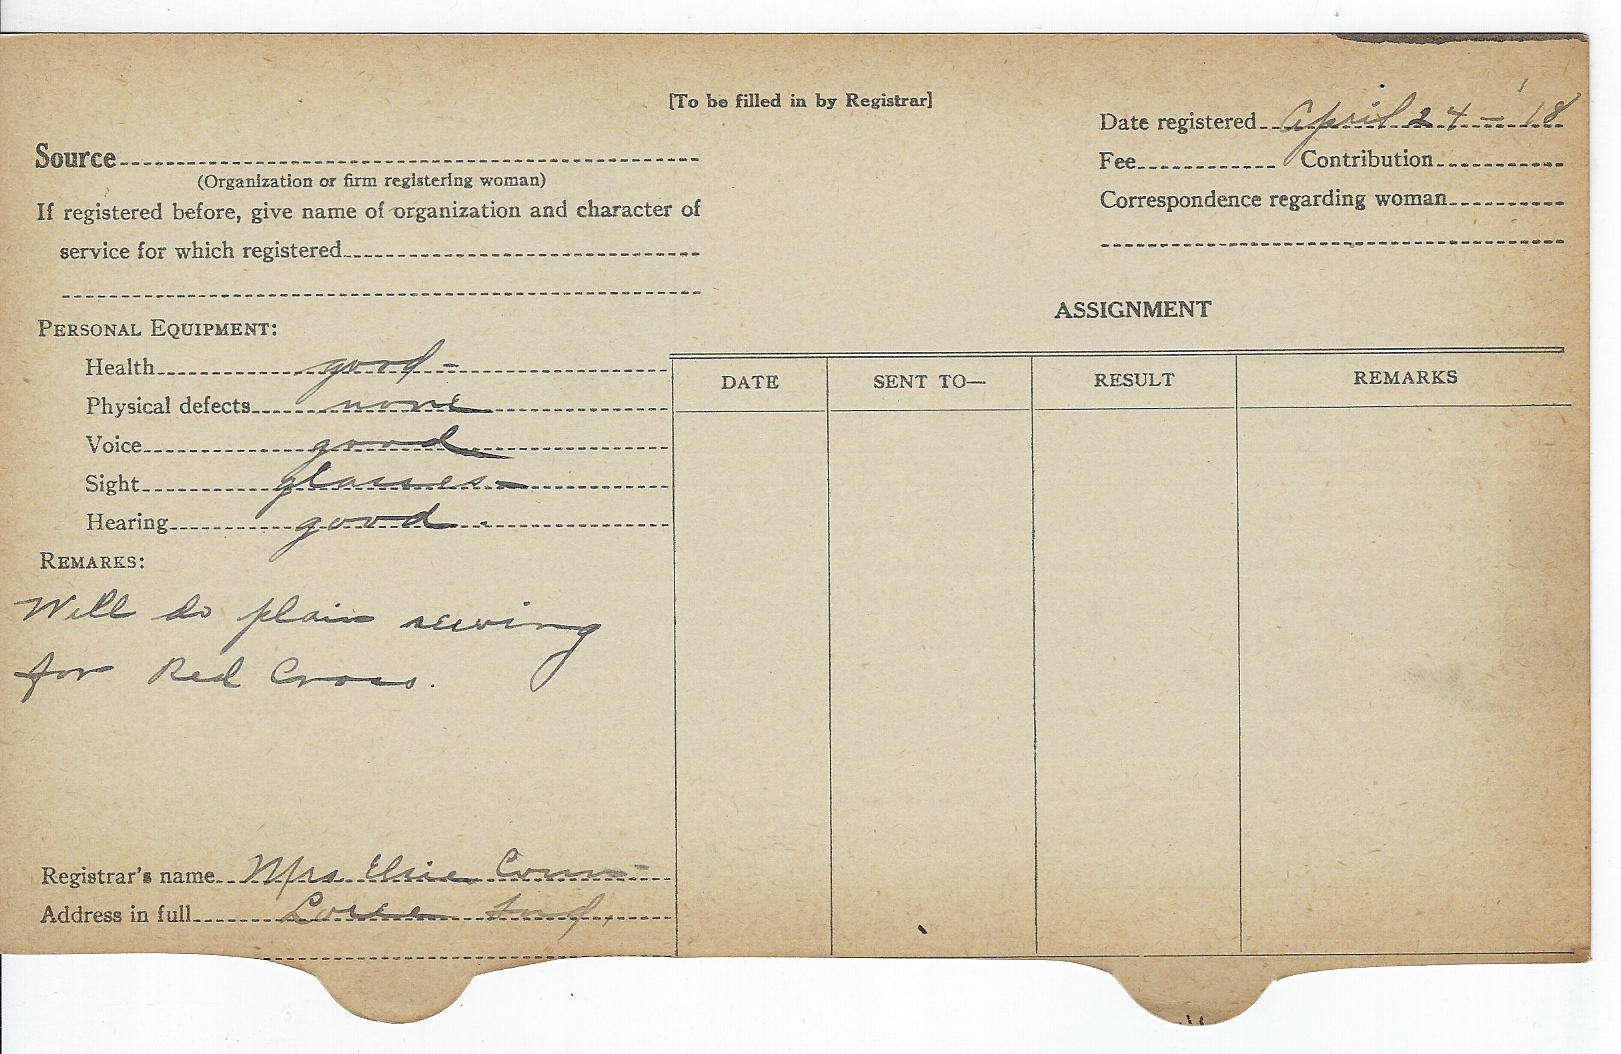 [To be filled in by Registrar]
Date registered April 24 - '18
Source
Fee Contribution
(Organization or firm registering woman)
Correspondence regarding woman
If registered before, give name of organization and character of
service for which registered
ASSIGNMENT
PERSONAL EQUIPMENT:
Health good -
Physical defects none
Voice good
Sight glasses -
Hearing good .
DATE SENT TO— RESULT REMARKS
REMARKS:
Will do plain sewing
for Red Cross.
Registrar's name Mrs Elsie Conn -
Address in full Loree Ind.